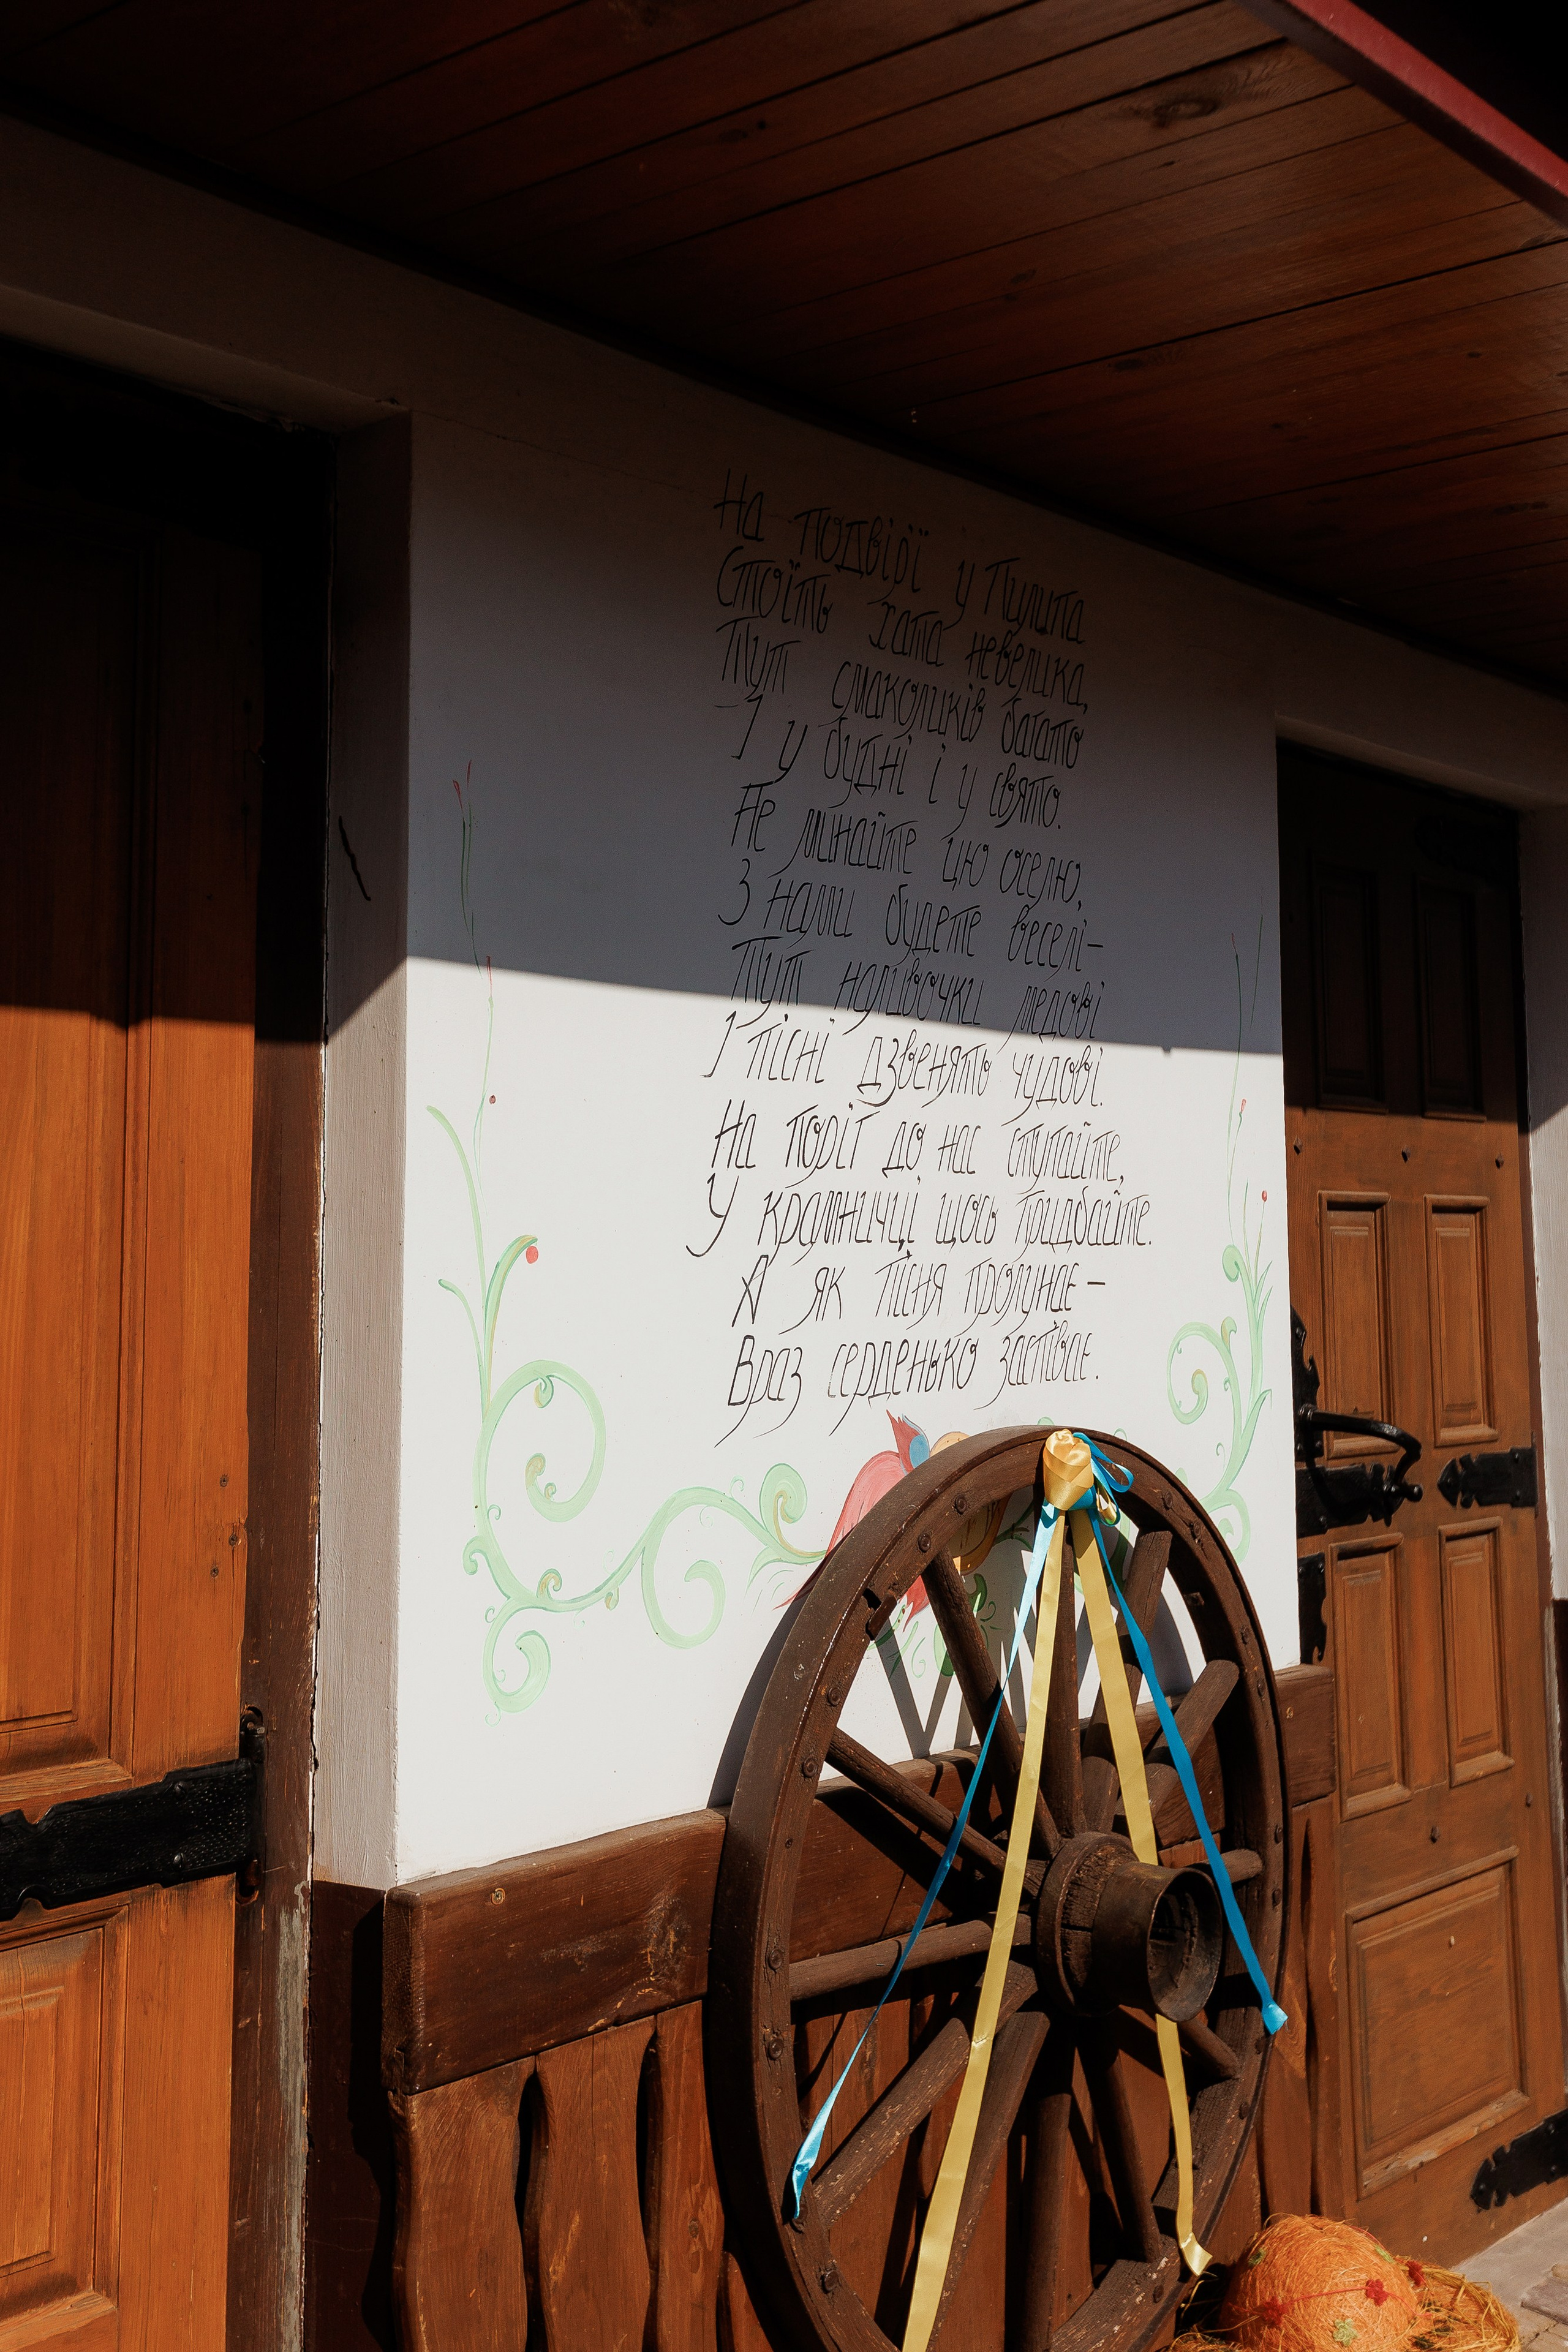 На подвірї у Пилипа
Стоїть хата невелика,
Тут смаколиків багато
І у будні і у свято.
Не минайте цю оселю,
З нами будете веселі-
Тут наливочки медові
І пісні дзвенять чудові.
На поріг до нас ступайте,
У крамничці щось придбайте.
А як пісня пролунає-
Враз серденько заспіває.